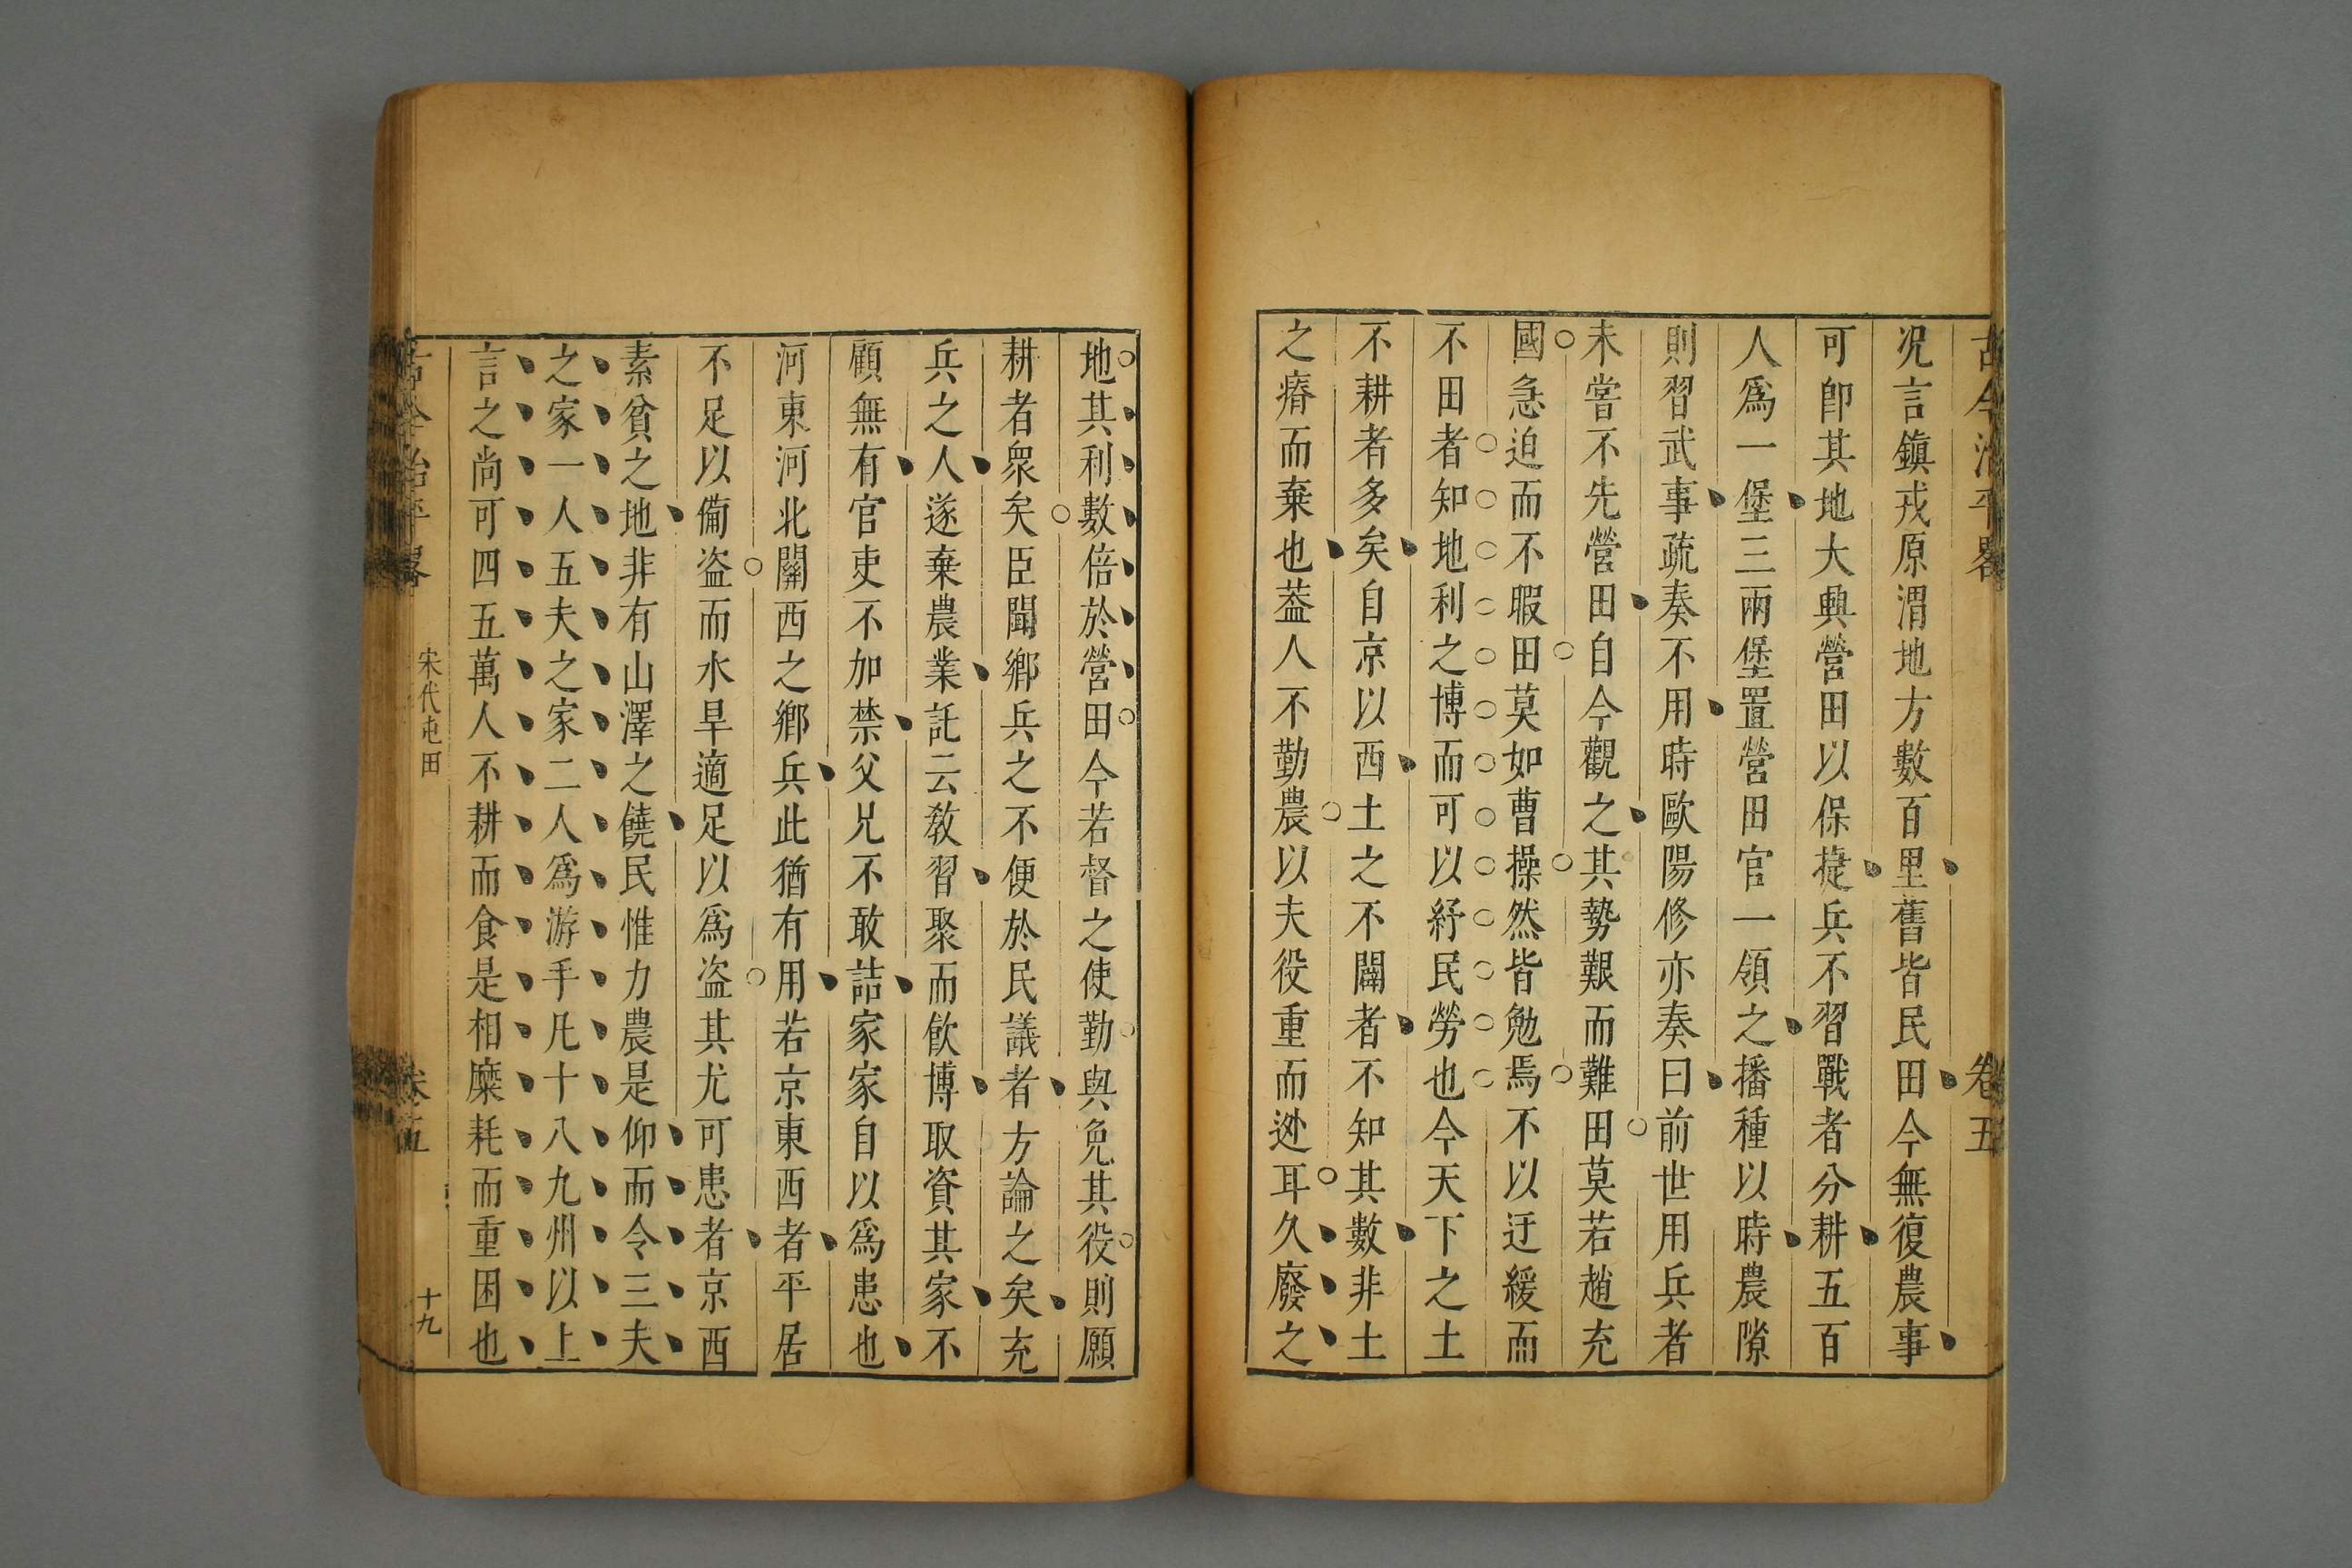 古今治平畧
卷五
况言鎮戎原渭地方數百里舊皆民田今無復農事
可卽其地大興營田以保捷兵不習戰者分耕五百
人爲一堡三兩堡置營田官一領之播種以時農隙
則習武事疏奏不用時歐陽修亦奏曰前世用兵者
未嘗不先營田自今觀之其勢艱而難田莫若趙充
國急迫而不暇田莫如曹操然皆勉焉不以迂緩而
不田者知地利之博而可以紓民勞也今天下之土
不耕者多矣自京以西土之不闢者不知其數非土
之瘠而棄也葢人不勤農以夫役重而逃耳久廢之
地其利數倍於營田今若督之使勤與免其役則願
耕者衆矣臣聞鄉兵之不便於民議者方論之矣充
兵之人遂棄農業託云敎習聚而飮博取資其家不
顧無有官吏不加禁父兄不敢詰家家自以爲患也
河東河北關西之鄉兵此猶有用若京東西者平居
不足以備盗而水旱適足以爲盗其尤可患者京西
素貧之地非有山澤之饒民惟力農是仰而令三夫
之家一人五夫之家二人爲游手凡十八九州以上
言之尚可四五萬人不耕而食是相糜耗而重困也
古今治平畧
宋代屯田
卷五
十九